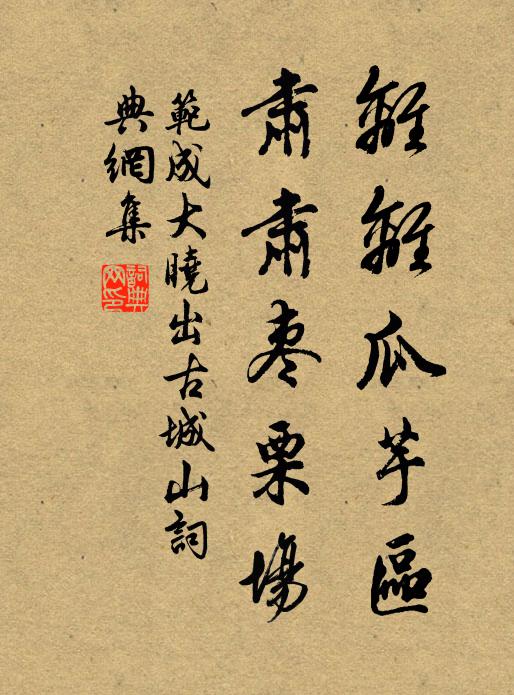 離離瓜芋區
肅肅棗栗場
範成大曉出古城山詞
典網集
詞典網印